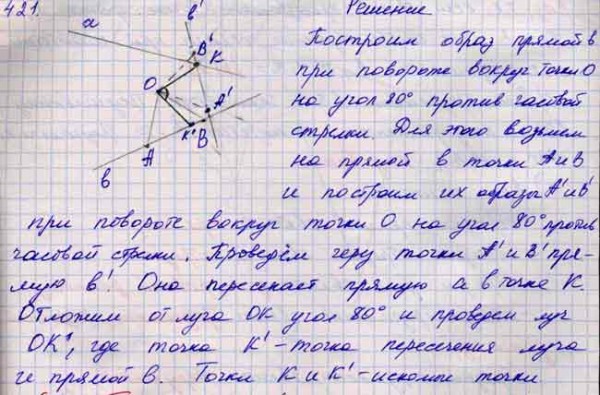 421.
Решение
a
b'
B'
K
O
A'
K'
B
A
b
Построим образ прямой b
при повороте вокруг точки O
на угол 80° против часовой
стрелки. Для этого возьмем
на прямой b точки A и B
и построим их образы A' и B'
при повороте вокруг точки O на угол 80° против
часовой стрелки. Проведём через точки A' и B' пря-
мую b'. Она пересекает прямую a в точке K.
Отложим от луча OK угол 80° и проведем луч
OK', где точка K' - точка пересечения луча
и прямой b. Точки K и K' - искомые точки